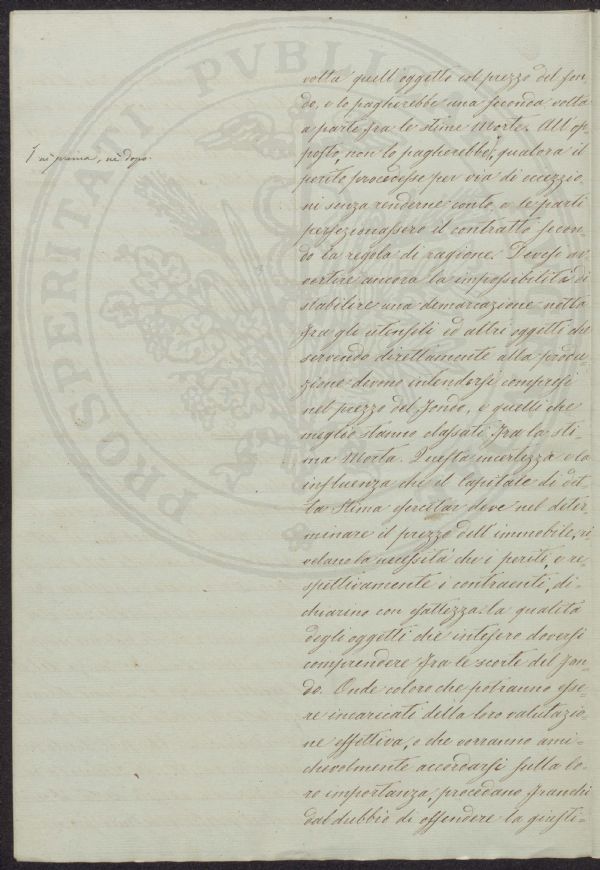 volta quell'oggetto col prezzo del fon-
do, e lo pagherebbe una seconda volta
a parte fra le stime Morte. All'op-
posto, non lo pagherebbe, qualora il
⌈ nè prima, nè dopo.
perito procedesse per via di eccezzio-
ni senza renderne conto, e le parti
perfezionassero il contratto secon-
do la regola di ragione. Devesi av-
vertire ancora la impossibilità di
stabilire una demarcazione netta
fra gli utensili ed altri oggetti che
servendo direttamente alla produ-
zione devono intendersi compresi
nel prezzo del fondo, e quelli che
meglio stanno classati fra la sti-
ma Morta. Questa incertezza e la
influenza che il Capitale di det-
ta Stima esercitar deve nel deter-
minare il prezzo dell'immobile, ri-
velano la necessità che i periti, e re-
spettivamente i contraenti, di-
chiarino con esattezza la qualità
degli oggetti che intesero doversi
comprendere fra le scorte del fon-
do. Onde coloro che potranno esse-
re incaricati della loro valutazio-
ne effettiva, o che vorranno ami-
chevolmente accordarsi sulla lo-
ro importanza, procedano franchi
dal dubbio di offendere la giusti-
PROSPERITATI PVBLICAE